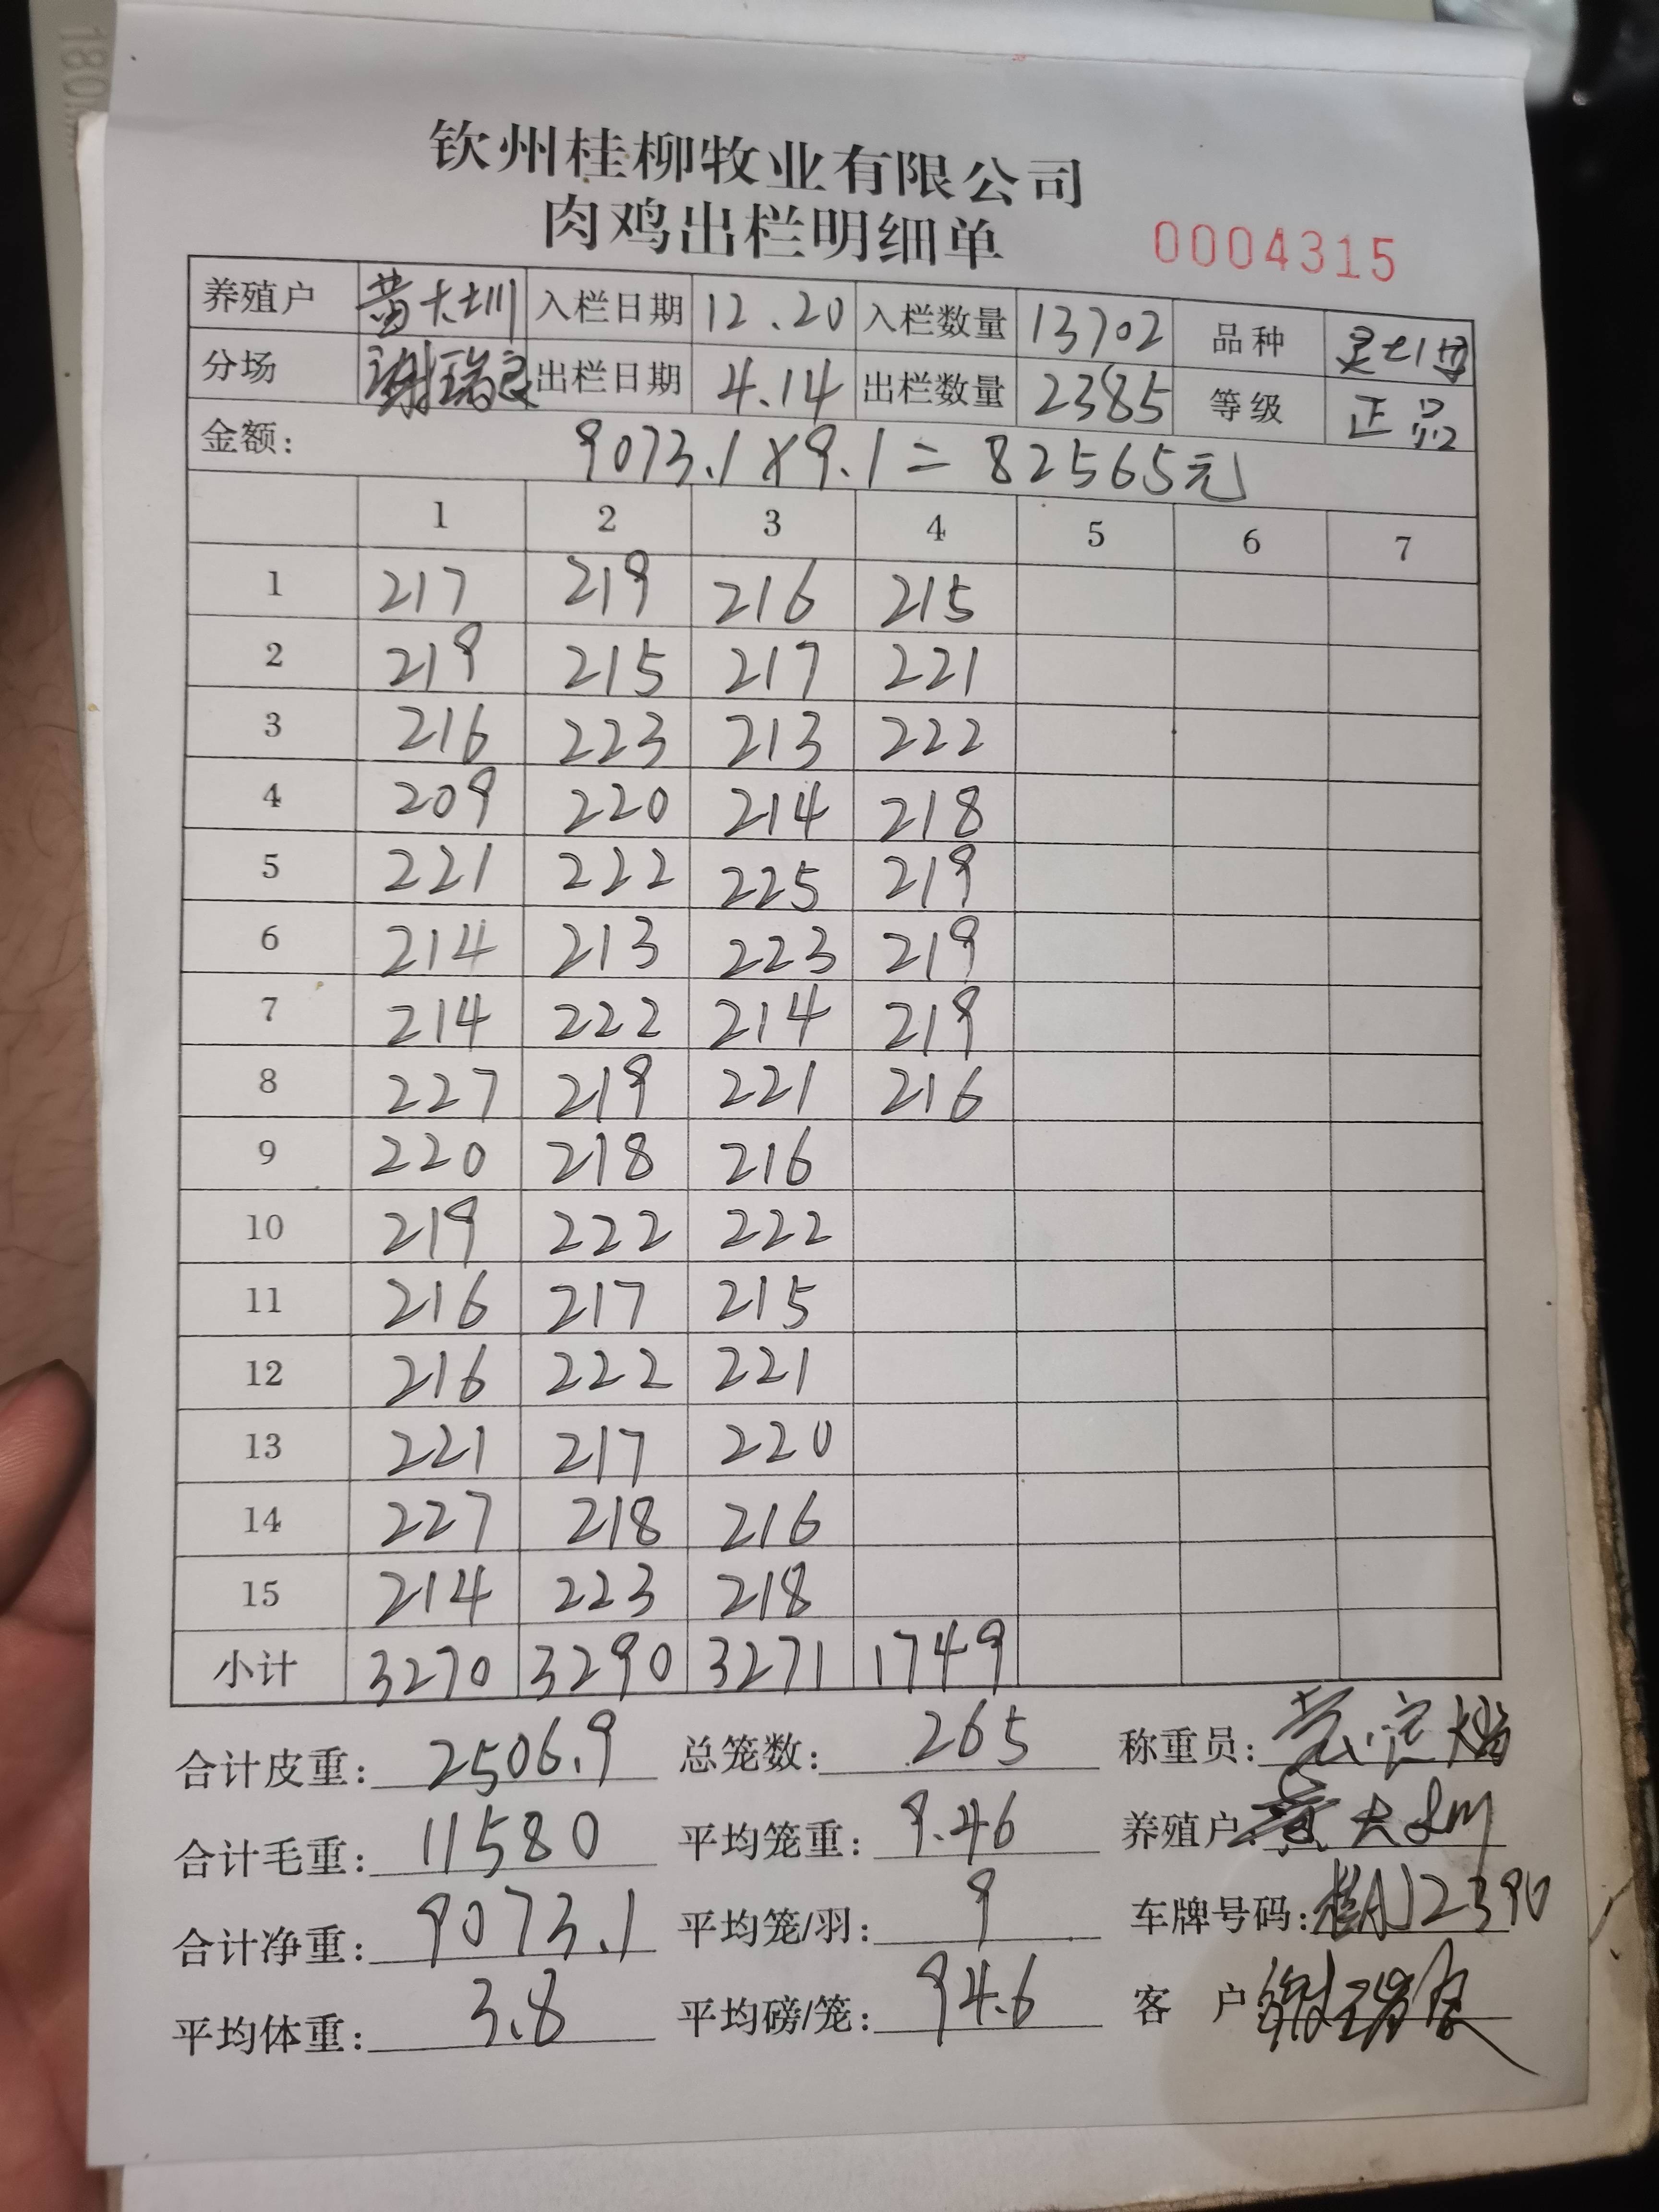 180
钦州桂柳牧业有限公司
肉鸡出栏明细单 0004315
养殖户 黄大圳 入栏日期 12.20 入栏数量 13702 品种
分场 谢瑞良 出栏日期 4.14 出栏数量 2385 等级 正品
金额: 9073.1×9.1=82565元
1 2 3 4 5 6 7
1 217 219 216 215
2 219 215 217 221
3 216 223 213 222
4 209 220 214 218
5 221 222 225 219
6 214 213 223 219
7 214 222 214 219
8 227 219 221 216
9 220 218 216
10 219 222 222
11 216 217 215
12 216 222 221
13 221 217 220
14 227 218 216
15 214 223 218
小计 3270 3290 3271 1749
合计皮重: 2506.9 总笼数: 265 称重员:
合计毛重: 11580 平均笼重: 9.46 养殖户: 黄大圳
合计净重: 9073.1 平均笼/羽: 9 车牌号码: 桂AJ2390
平均体重: 3.8 平均磅/笼: 94.6 客 户 谢瑞良